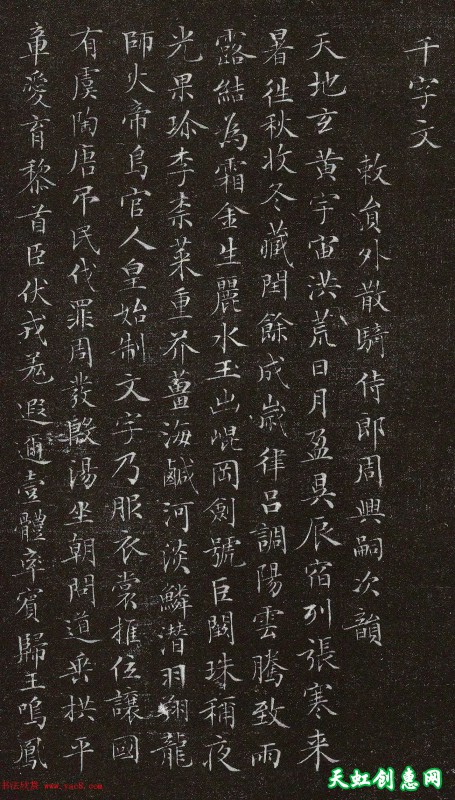 千字文
敕員外散騎侍郎周興嗣次韻
天地玄黃宇宙洪荒日月盈昃辰宿列張寒来
暑往秋收冬藏閏餘成歲律呂調陽雲騰致雨
露結為霜金生麗水玉出崐岡劍號巨闕珠稱夜
光果珎李柰菜重芥薑海鹹河淡鱗潛羽翔龍
師火帝鳥官人皇始制文字乃服衣裳推位讓國
有虞陶唐吊民伐罪周發殷湯坐朝問道垂拱平
章愛育黎首臣伏戎羌遐邇壹體率賓歸王鳴鳳
书法时空 www.yac8.com
天虹创意网